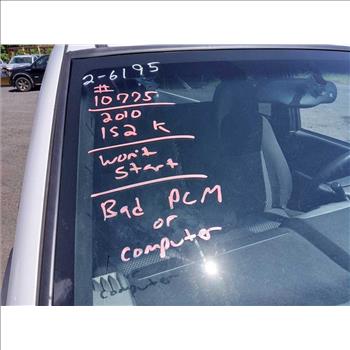 2-6195
#
10775
2010
152 K
won't
Start
Bad PCM
or
computer